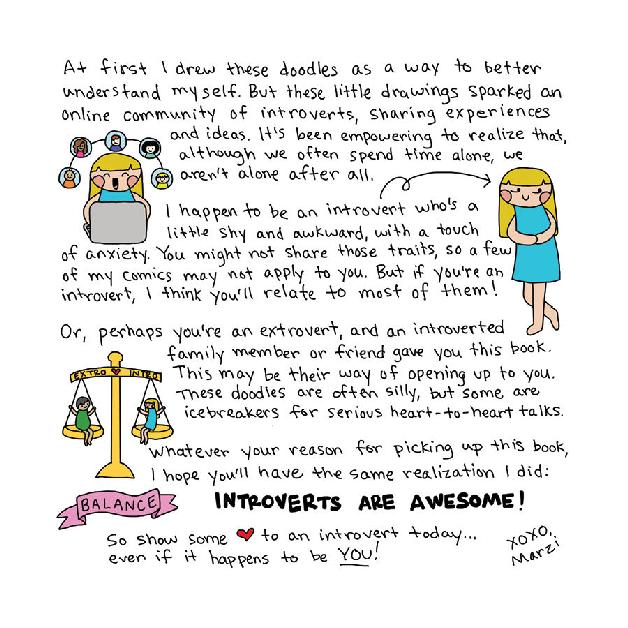 At first I drew these doodles as a way to better
understand myself. But these little drawings sparked an
online community of introverts, sharing experiences
and ideas. It's been empowering to realize that,
although we often spend time alone, we
aren't alone after all.
I happen to be an introvert who's a
little shy and awkward, with a touch
of anxiety. You might not share those traits, so a few
of my comics may not apply to you. But if you're an
introvert, I think you'll relate to most of them!
Or, perhaps you're an extrovert, and an introverted
family member or friend gave you this book.
EXTRO ♥ INTRO
This may be their way of opening up to you.
These doodles are often silly, but some are
icebreakers for serious heart-to-heart talks.
Whatever your reason for picking up this book,
I hope you'll have the same realization I did:
BALANCE
INTROVERTS ARE AWESOME!
So show some ♥ to an introvert today...
even if it happens to be YOU!
XOXO,
Marzi